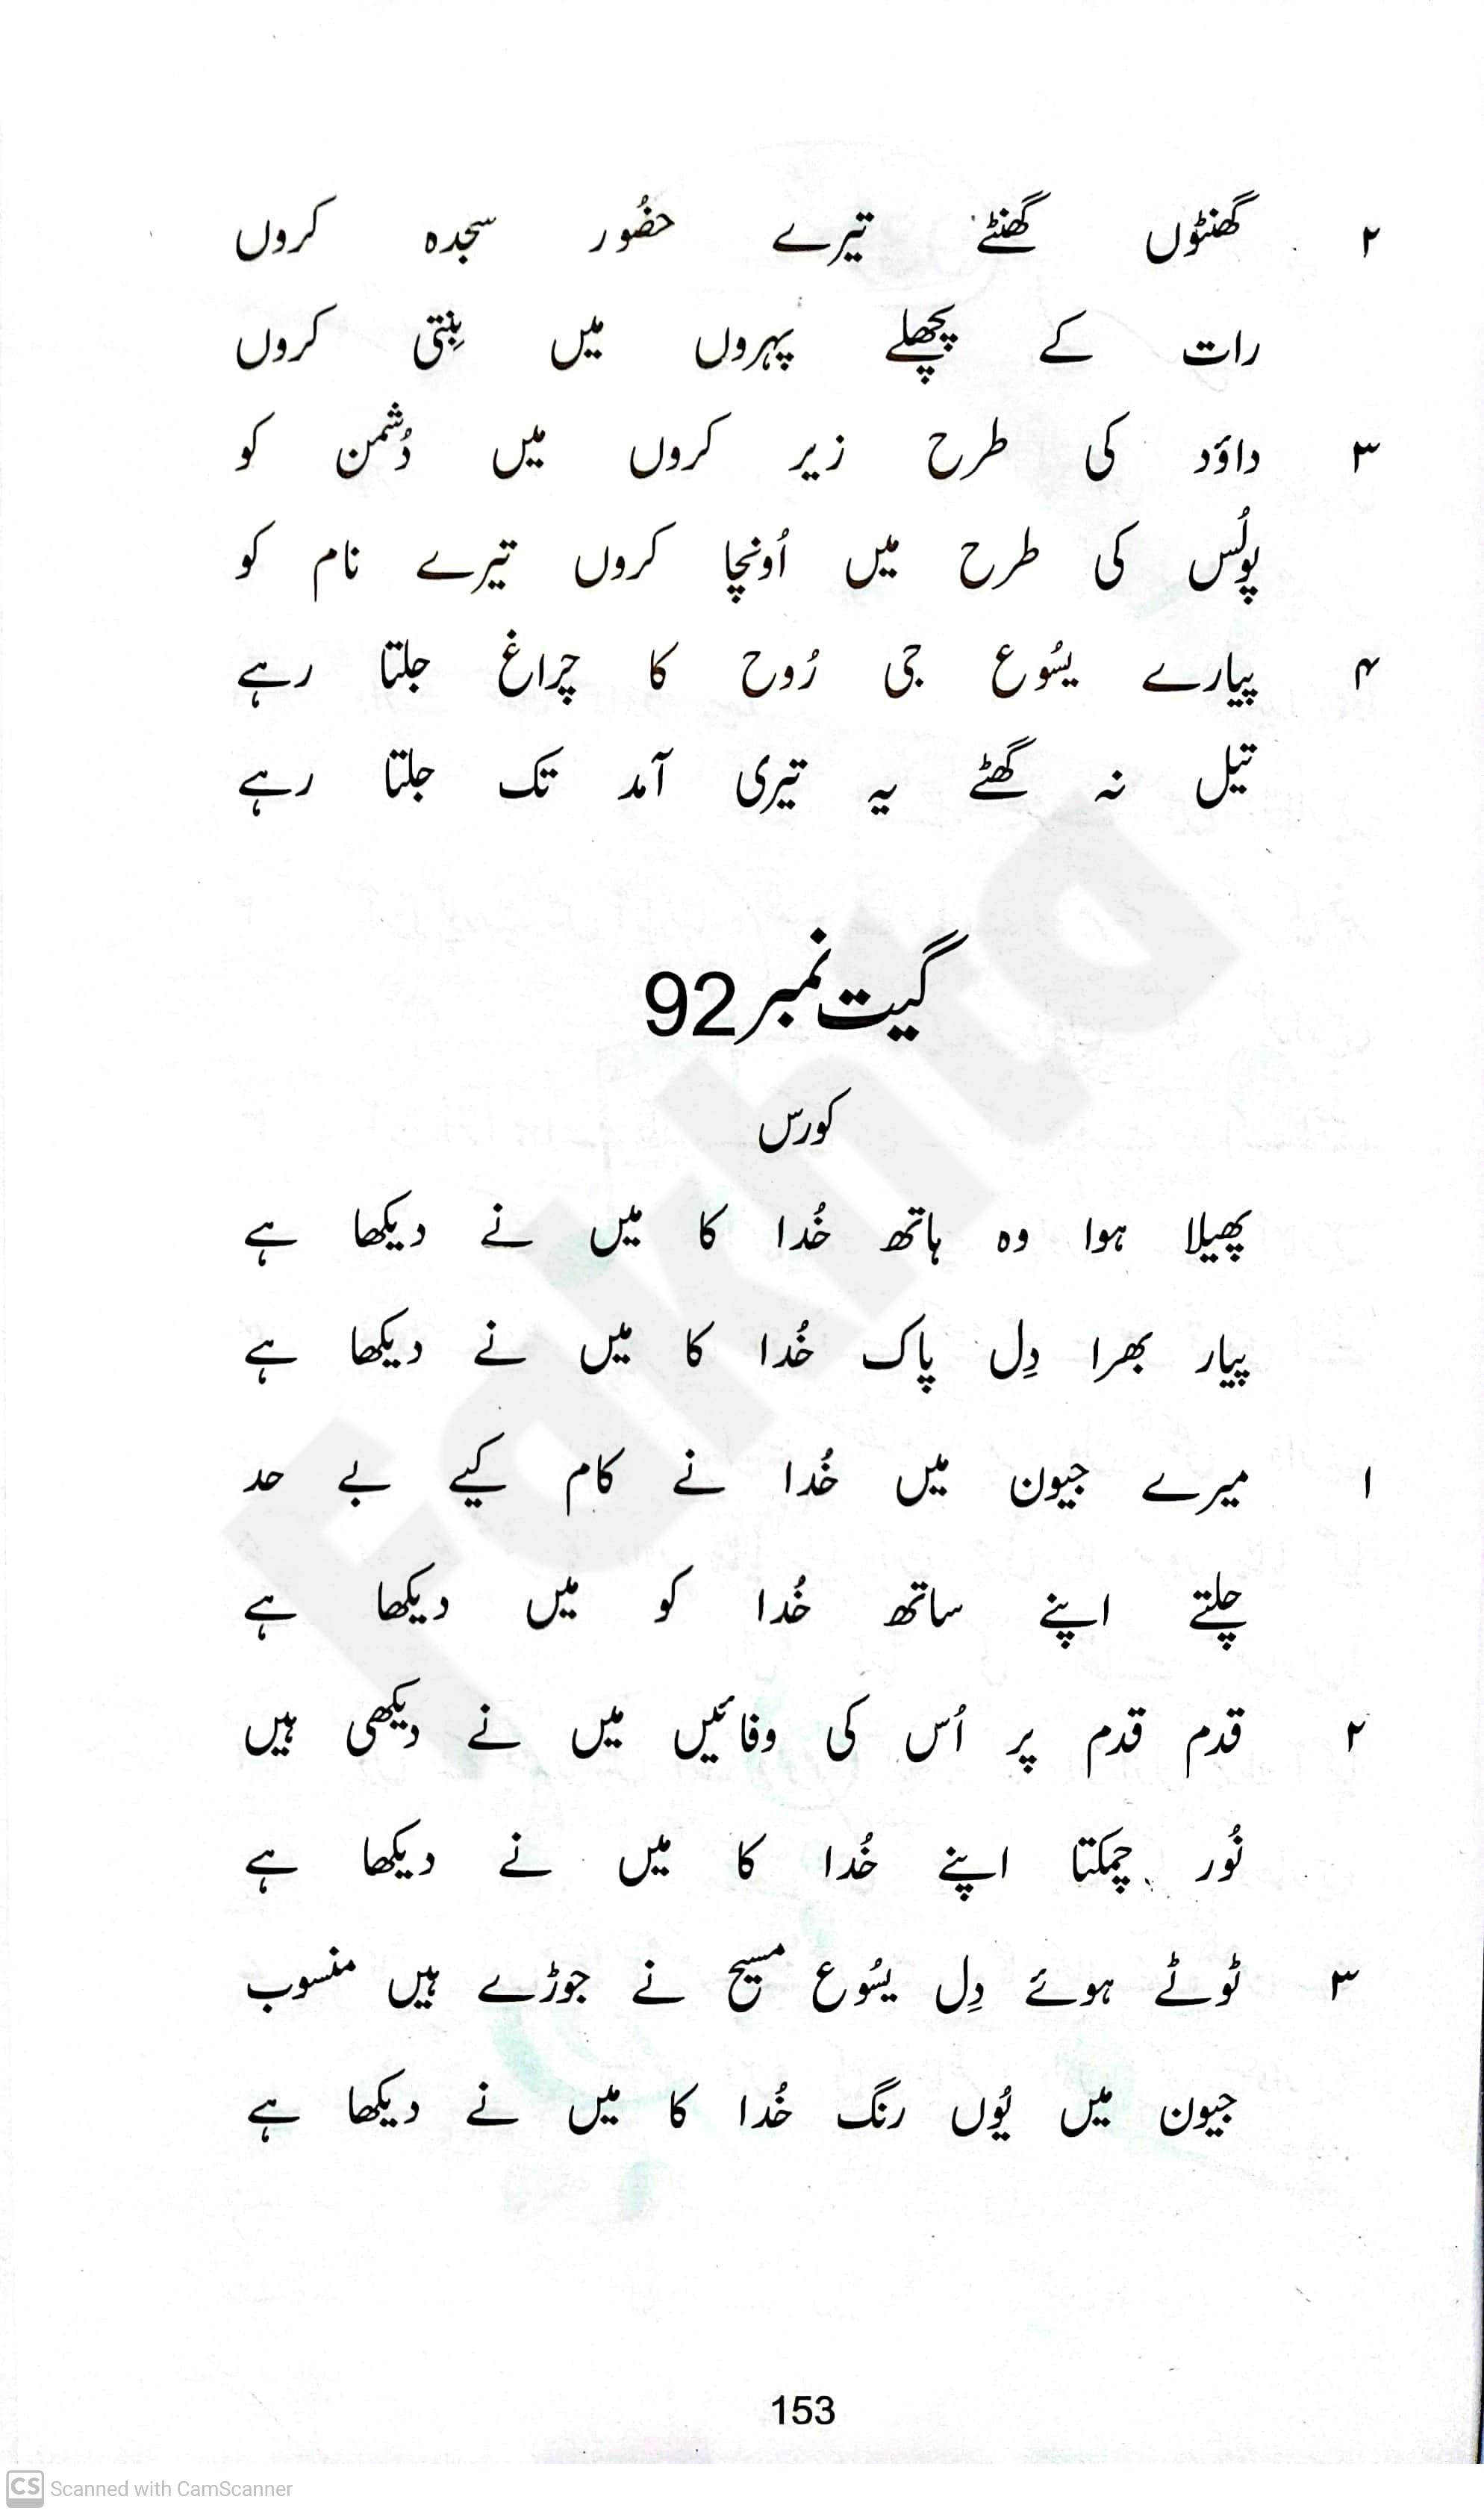 ۲ گھنٹوں گھنٹے تیرے حضُور سجدہ کروں
رات کے پچھلے پہروں میں بِنتی کروں
۳ داؤد کی طرح زیر کروں میں دُشمن کو
پولُس کی طرح میں اُونچا کروں تیرے نام کو
۴ پیارے یسُوع جی رُوح کا چراغ جلتا رہے
تیل نہ گھٹے یہ تیری آمد تک جلتا رہے
گیت نمبر 92
کورس
پھیلا ہوا وہ ہاتھ خُدا کا میں نے دیکھا ہے
پیار بھرا دِل پاک خُدا کا میں نے دیکھا ہے
۱ میرے جیون میں خُدا نے کام کیے بے حد
چلتے اپنے ساتھ خُدا کو میں دیکھا ہے
۲ قدم قدم پر اُس کی وفائیں میں نے دیکھی ہیں
نُور چمکتا اپنے خُدا کا میں نے دیکھا ہے
۳ ٹوٹے ہوئے دِل یسُوع مسیح نے جوڑے ہیں منسوب
جیون میں یُوں رنگ خُدا کا میں نے دیکھا ہے
Fakhta
153
CS Scanned with CamScanner